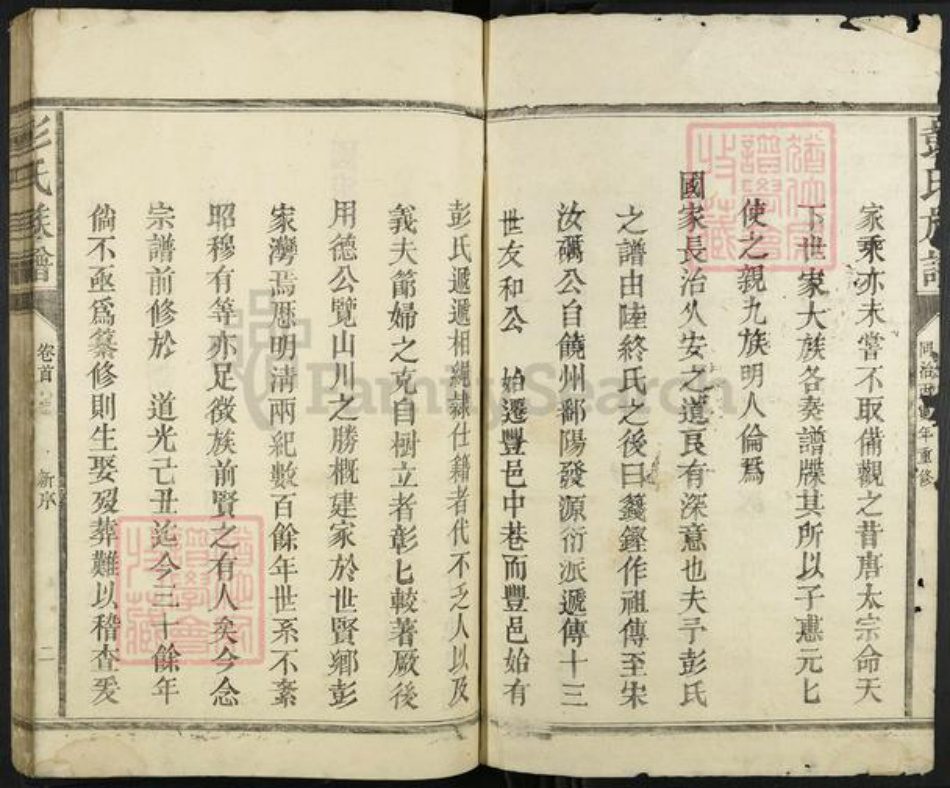 彭氏族譜
同治 年重修
家乘亦未嘗不取備觀之昔唐太宗命天
下世家大族各奏譜牒其所以子惠元匕
使之親九族明人倫爲
國家長治久安之道良有深意也夫予彭氏
之譜由陸終氏之後曰籛鏗作祖傳至宋
汝礪公自饒州鄱陽發源衍派遞傳十三
世友和公 始遷豐邑中巷而豐邑始有
彭氏遞遞相繩隸仕籍者代不乏人以及
義夫節婦之克自樹立者彰匕較著厥後
用德公覽山川之勝概建家於世賢鄉彭
家灣焉歷明清兩紀數百餘年世系不紊
昭穆有等亦足徵族前賢之有人矣今念
宗譜前修於 道光己丑迄今三十餘年
倘不亟爲纂修則生娶歿葬難以稽查爰
彭氏族譜
卷首
新序
二
FamilySearch